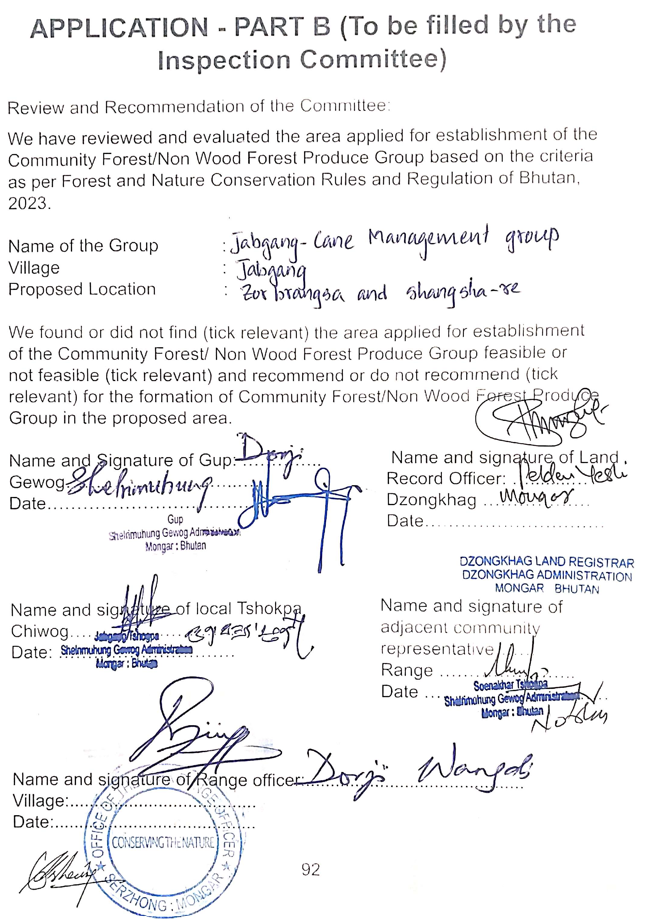 APPLICATION - PART B (To be filled by the
Inspection Committee)
Review and Recommendation of the Committee:
We have reviewed and evaluated the area applied for establishment of the
Community Forest/Non Wood Forest Produce Group based on the criteria
as per Forest and Nature Conservation Rules and Regulation of Bhutan,
2023.
Name of the Group : Jabgang-Cane Management group
Village : Jabgang
Proposed Location : Zor brangsa and shangsha-re
We found or did not find (tick relevant) the area applied for establishment
of the Community Forest/ Non Wood Forest Produce Group feasible or
not feasible (tick relevant) and recommend or do not recommend (tick
relevant) for the formation of Community Forest/Non Wood Forest Produce
Group in the proposed area.
Name and Signature of Gup: Dorji
Gewog Shelrimuhung
Date
Gup
Shelrimuhung Gewog Administration
Mongar : Bhutan
Name and signature of Land
Record Officer:
Dzongkhag Mongar
Date
DZONGKHAG LAND REGISTRAR
DZONGKHAG ADMINISTRATION
MONGAR BHUTAN
Name and signature of local Tshokpa
Chiwog
Date:
Jabgang Tshogpa
Shelrimuhung Gewog Administration
Mongar : Bhutan
Name and signature of
adjacent community
representative
Range
Date
Soenakhar Tshokpa
Shelrimuhung Gewog Administration
Mongar : Bhutan
Name and signature of Range officer: Dorji Wangdi
Village:
Date:
OFFICE OF THE RANGE OFFICER
CONSERVING THE NATURE
SERZHONG : MONGAR
92